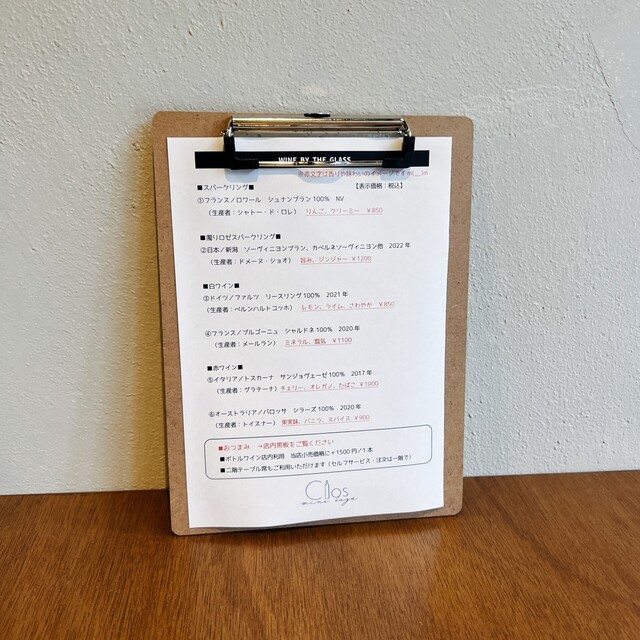 WINE BY THE GLASS
※赤文字は香りや味わいのイメージですm(__)m
■スパークリング■ 【表示価格:税込】
①フランス/ロワール シュナンブラン100% NV
(生産者:シャトー・ド・ロレ) りんご、クリーミー ¥850
■濁りロゼスパークリング■
②日本/新潟 ソーヴィニヨンブラン、カベルネソーヴィニヨン他 2022年
(生産者:ドメーヌ・ショオ) 旨み、ジンジャー ¥1200
■白ワイン■
③ドイツ/ファルツ リースリング100% 2021年
(生産者:ベルンハルトコッホ) レモン、ライム、さわやか ¥850
④フランス/ブルゴーニュ シャルドネ100% 2020年
(生産者:メールラン) ミネラル、塩気 ¥1100
■赤ワイン■
⑤イタリア/トスカーナ サンジョヴェーゼ100% 2017年
(生産者:グラテーナ) チェリー、オレガノ、たばこ ¥1000
⑥オーストラリア/バロッサ シラーズ100% 2020年
(生産者:トイスナー) 果実味、バニラ、スパイス ¥900
■おつまみ →店内黒板をご覧ください
■ボトルワイン店内利用 当店小売価格に+1500円/1本
■二階テーブル席もご利用いただけます(セルフサービス・注文は一階で)
Clos